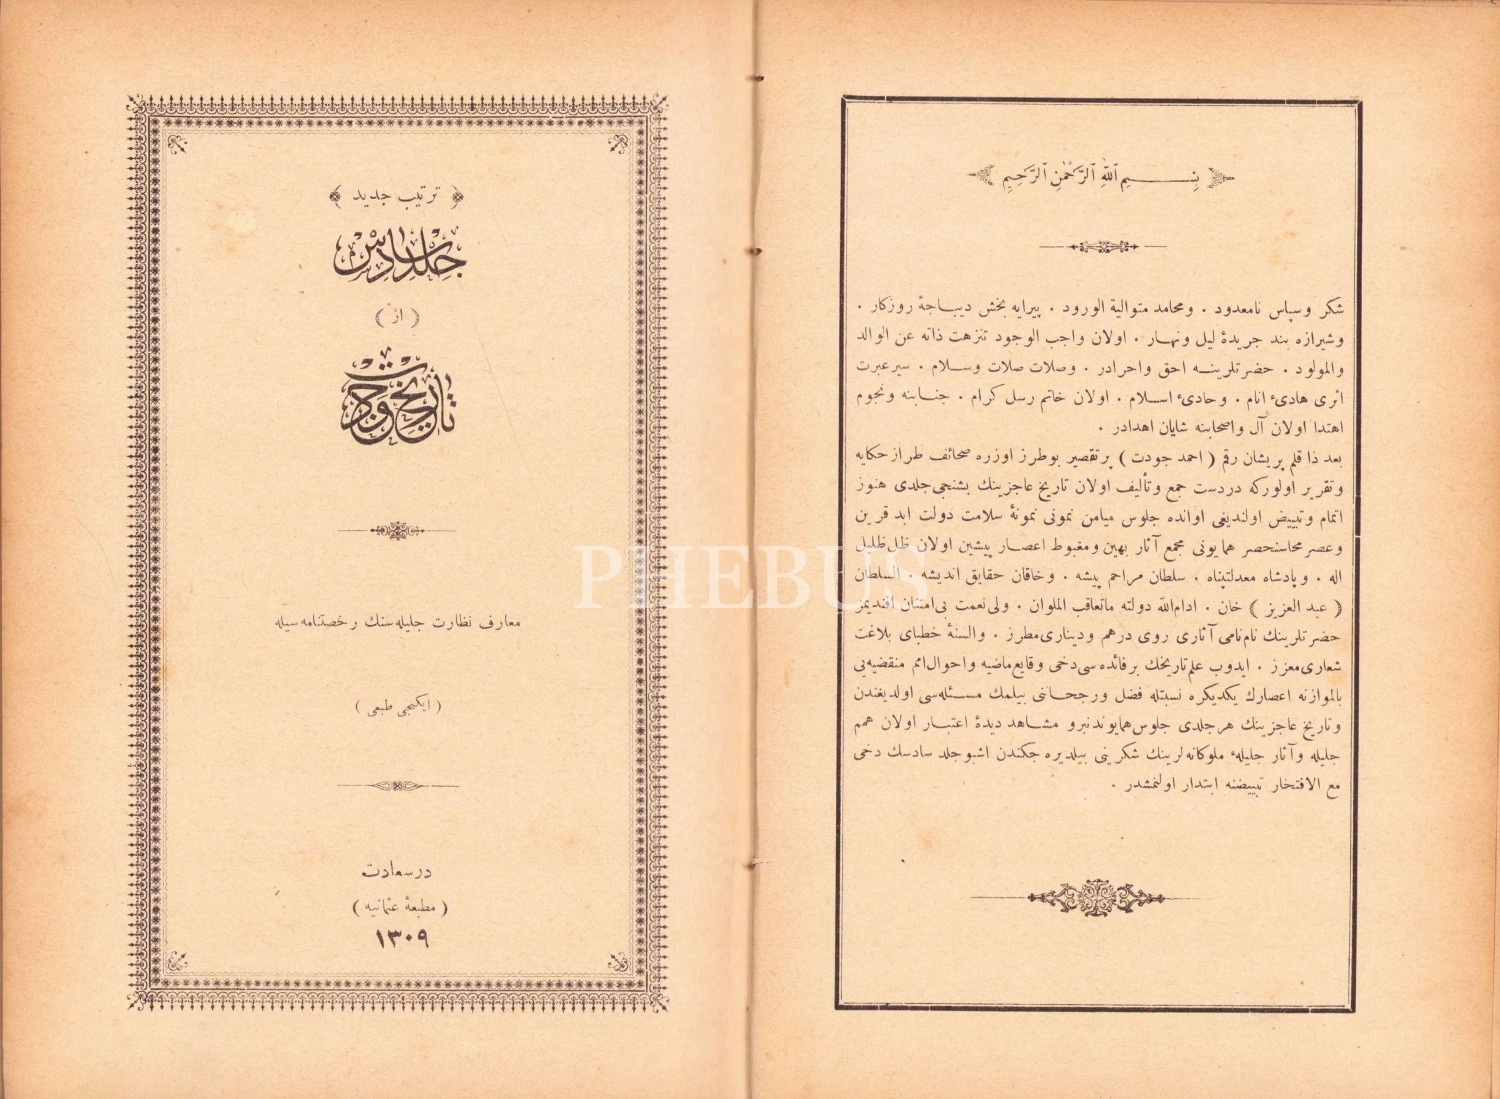 ترتيب جديد
جلد سادس
( از )
تاريخ جودت
معارف نظارت جليله‌سنك رخصتنامه‌سيله
( ايكنجى طبعى )
درسعادت
( مطبعهٔ عثمانيه )
١٣٠٩
بِسْمِ ٱللّٰهِ ٱلرَّحْمٰنِ ٱلرَّحِيمِ
شكر وسپاس نامعدود . ومحامد متوالية الورود . پيرايه بخش ديباجهٔ روزكار .
وشيرازه بند جريدهٔ ليل ونهار . اولان واجب الوجود تنزهت ذاته عن الوالد
والمولود . حضرتلرينه احق واحرادر . وصلات صلات وسلام . سير عبرت
اثرى هادئ انام . وحادئ اسلام . اولان خاتم رسل كرام . جنابنه ونجوم
اهتدا اولان آل واصحابنه شايان اهدادر .
بعد ذا قلم پريشان رقم ( احمد جودت ) پرتقصير بوطرز اوزره صحائف طراز حكايه
وتقرير اولوركه دردست جمع وتأليف اولان تاريخ عاجزينك بشنجى جلدى هنوز
اتمام وتبييض اولنديغى اوانده جلوس ميامن نمونى نمونهٔ سلامت دولت ابد قرين
وعصر محاسنحصر همايونى مجمع آثار بهين ومغبوط اعصار پيشين اولان ظل ظليل
اله . وپادشاه معدلتپناه . سلطان مراحم پيشه . وخاقان حقايق انديشه . السلطان
( عبد العزيز ) خان . ادام‌الله دولته ماتعاقب الملوان . ولى‌نعمت بى‌امتنان افنديمز
حضرتلرينك نام‌نامى آثارى روى درهم ودينارى مطرز . والسنهٔ خطباى بلاغت
شعارى معزز . ايدوب علم تاريخك برفائده‌سى دخى وقايع ماضيه واحوال امم منقضيه‌يى
بالموازنه اعصارك يكديكره نسبتله فضل ورجحاننى بيلمك مسئله‌سى اولديغندن
وتاريخ عاجزينك هر جلدى جلوس همايوندنبرو مشاهد ديدهٔ اعتبار اولان همم
جليله وآثار جليلهٔ ملوكانه‌لرينك شكرينى بيلديره‌جكندن اشبو جلد سادسك دخى
مع الافتخار تبييضنه ابتدار اولنمشدر .
PHEBUS